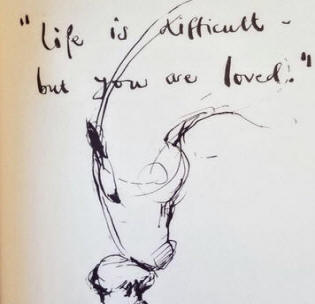 "life is difficult -
but you are loved."